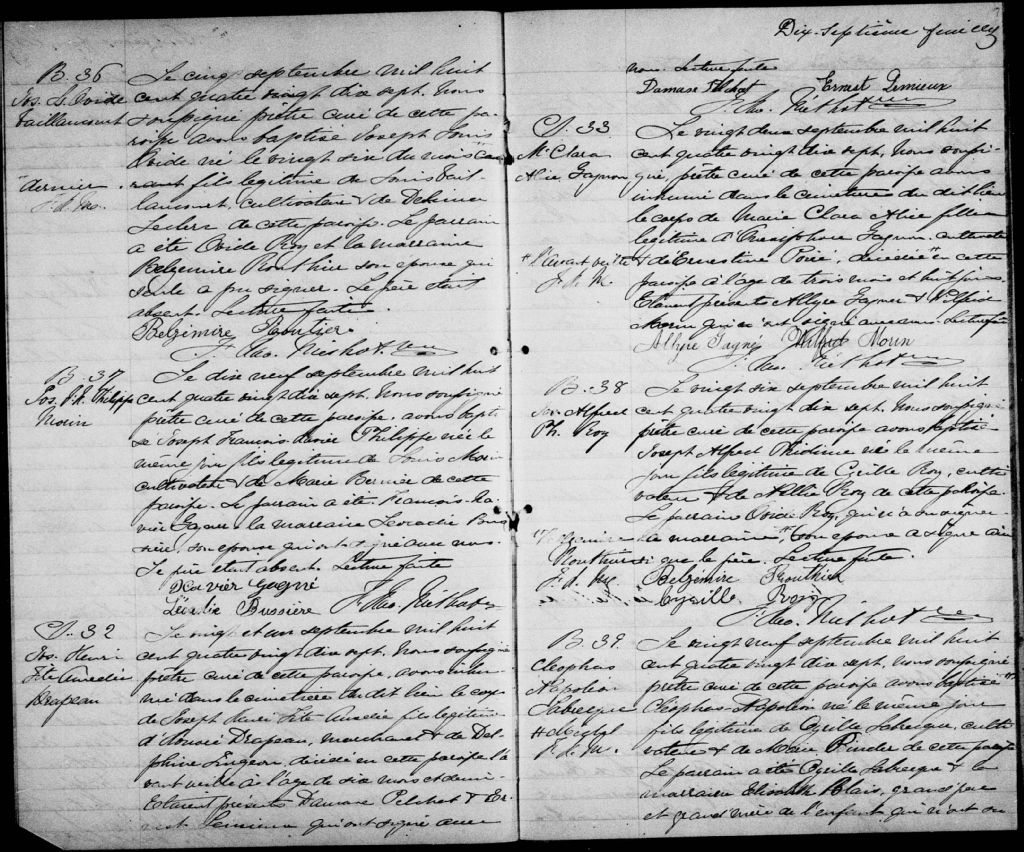 B. 36
Jos. Ls Ovide
Vaillancourt
"dernier
F. A. Mo.
Le cinq septembre mil huit
cent quatre vingt dix sept. Nous
soussigné prêtre curé de cette pa-
roisse avons baptisé Joseph Louis
Ovide né le vingt six du mois "cou
rant fils legitime de Louis Vail-
lancourt, cultivateur & de Delima
Leclerc de cette paroisse. Le parrain
a été Ovide Roy et la marraine
Belzémire Routhier son epouse qui
seule a pu signer. Le père était
absent. Lecture faite.
Belzémire Routier
B. 37
Jos. F. X. Philippe
Morin
Le dix neuf septembre mil huit
cent quatre vingt dix sept. Nous soussigné
prêtre curé de cette paroisse, avons bapti-
sé Joseph François Xavier Philippe né le
même jour fils legitime de Louis Morin
cultivateur & de Marie Bernier de cette
paroisse. Le parrain a été François-Xa-
vier Gagner la marraine Leocadie Bus
sière, son epouse qui ont signé avec nous.
Le père était absent. Lecture faite
Xavier Gagné
Léocadie Bussière
S. 32
Jos. Henri
Drapeau
Le vingt et un septembre mil huit
cent quatre vingt dix sept. Nous soussigné
prêtre curé de cette paroisse, avons inhu-
mé dans le cimetière du dit lieu le corps
de Joseph Henri Aurelie fils legitime
Drapeau, marchand & de Del-
phine Turgeon, décédé en cette paroisse l'a
vant veille à l'âge de six mois & demi
Etaient présents Damase Pelchat & Er-
nest Lemieux qui ont signé avec
Dix-Septième feuillet
nous. Lecture faite
Damase Pelchat Ernest Lemieux
S. 33
M. Clara
Alice Gagnon
"l'avant veille
F. A. M
Le vingt deux septembre mil huit
cent quatre vingt dix sept, Nous soussi-
gné, prêtre curé de cette paroisse avons
inhumé dans le cimetière du dit lieu
le corps de Marie Clara Alice fille
legitime d'Onesiphore Gagnon, cultivateur
& de Ernestine Poiré, décédée " en cette
paroisse à l'âge de trois mois et huit jours
Etaient présents Allyre Gagner & Wilfrid
Morin qui ont signé avec nous. Lecture faite
Allyre Gagné Wilfrid Morin
B. 38
Jos. Alfred
Ph. Roy
F. A. Mo
Le vingt six septembre mil huit
cent quatre vingt dix sept, Nous soussigné
prêtre curé de cette paroisse avons baptisé
Joseph Alfred Phidime né le même
jour fils legitime de Cyrille Roy, culti-
vateur & de Nellie Roy de cette paroisse.
Le parrain Ovide Roy, qui n'a su signer
la marraine " son epouse a signé ain
si que le père. Lecture faite.
Belzémire Routhier
Cyrille Roy
B. 39.
Cleophas
Napoléon
Labrecque
F. A. M.
Le vingt neuf septembre mil huit
cent quatre vingt dix sept, Nous soussigné
prêtre curé de cette paroisse avons baptisé
Cleophas Napoléon né le même jour
fils legitime de Cyrille Labrecque, culti
vateur & de Marie de cette paroisse
Le parrain a été Cyrille Labrecque & la
marraine Elisabeth Blais, grand père
et grand'mère de l'enfant qui n'ont su